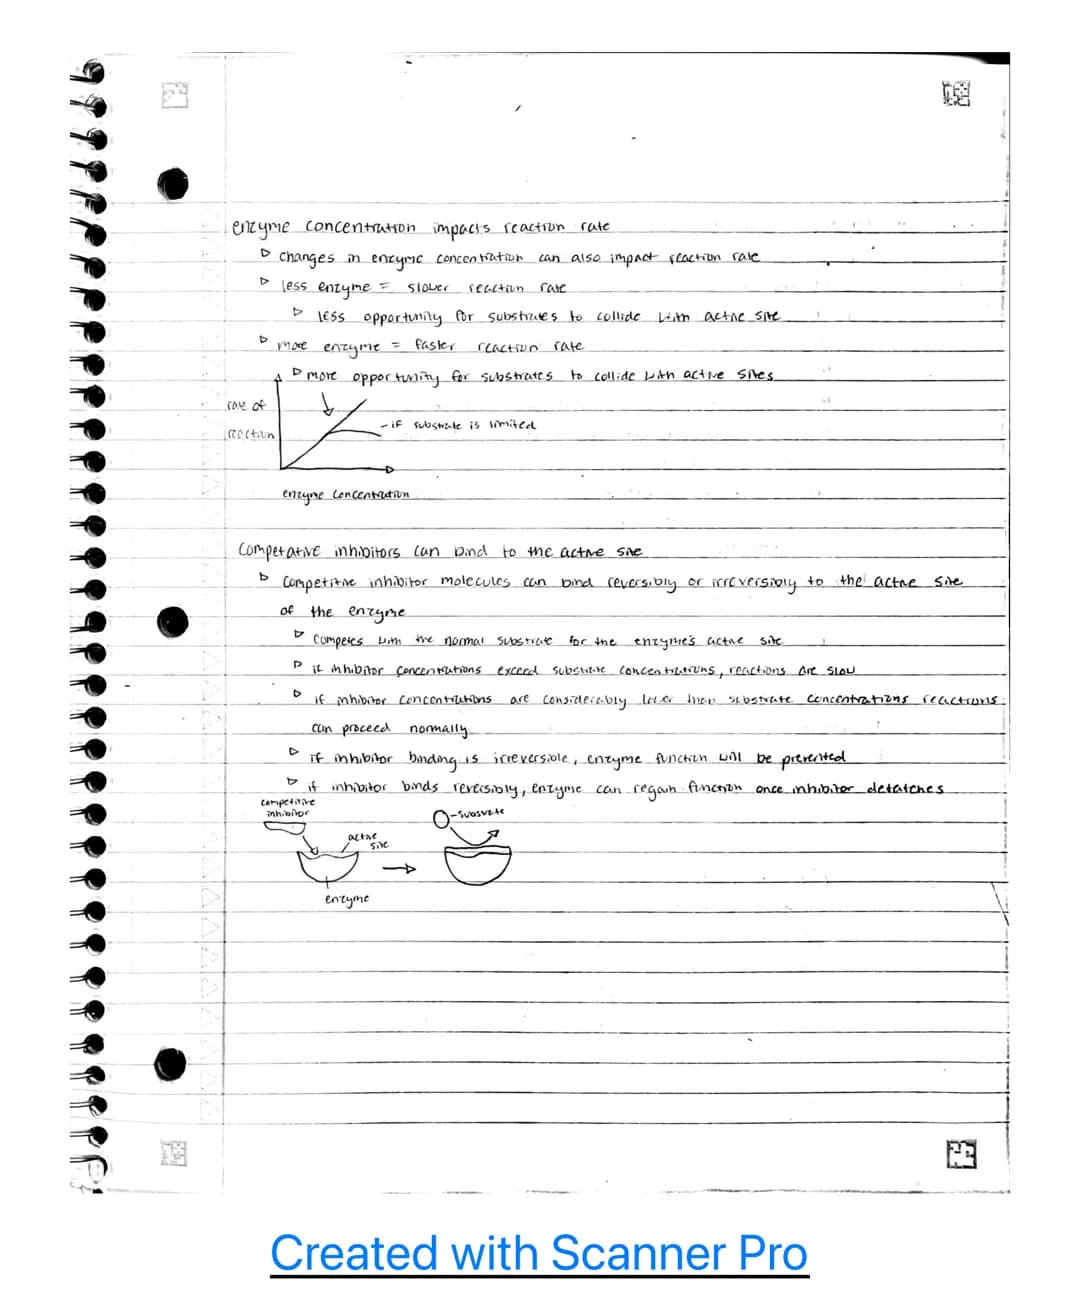 enzyme concentration impacts reaction rate
▷ changes in enzyme concentration can also impact reaction rate
▷ less enzyme = slower reaction rate
▷ less opportunity for substrates to collide with active site
▷ more enzyme = faster reaction rate
▷ more opportunity for substrates to collide with active sites
rate of
reaction
- if substrate is limited
enzyme concentration
Competative inhibitors can bind to the active site
▷ Competitive inhibitor molecules can bind reversibly or irreversibly to the active site
of the enzyme
▷ Competes with the normal substrate for the enzyme's active site
▷ if inhibitor concentrations exceed substrate concentrations, reactions are slow
▷ if inhibitor concentrations are considerably lower than substrate concentrations reactions
can proceed normally
▷ if inhibitor binding is irreversible, enzyme function will be prevented
▷ if inhibitor binds reversibly, enzyme can regain function once inhibitor detatches
competitive
inhibitor
active
site
enzyme
- substrate
Created with Scanner Pro